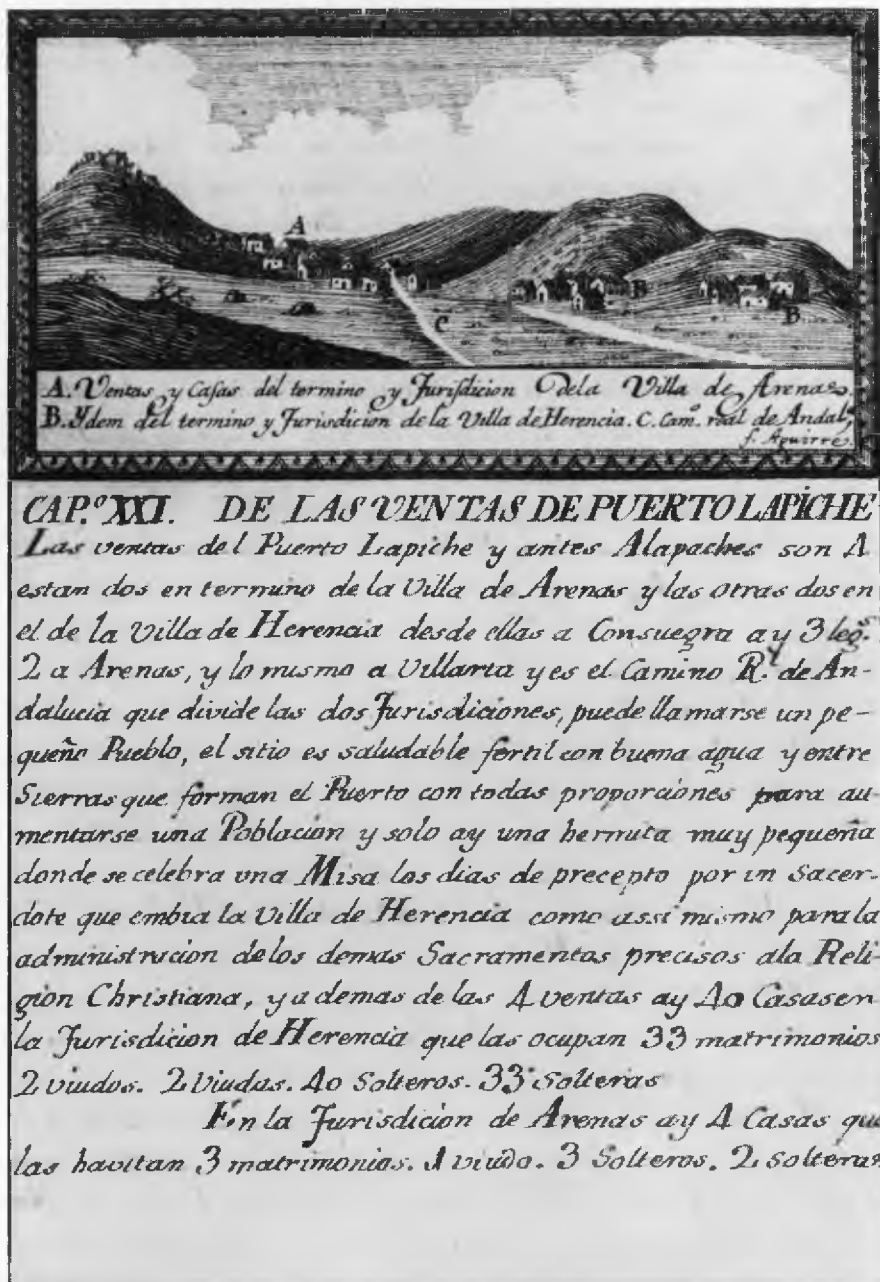 A
B
C
B
A. Ventas y Casas del termino y Jurisdicion dela Villa de Arenas.
B. Ydem del termino y Jurisdicion de la Villa de Herencia. C. Cam.º real de Andal.ª
f. Aguirre.
CAP.º XXI. DE LAS VENTAS DE PUERTO LAPICHE
Las ventas del Puerto Lapiche y antes Alapaches son 4
estan dos en termino de la Villa de Arenas y las otras dos en
el de la Villa de Herencia desde ellas a Consuegra ay 3 leg.s
2 a Arenas, y lo mismo a Villarta y es el Camino R.l de An-
dalucia que divide las dos Jurisdiciones, puede llamarse un pe-
queño Pueblo, el sitio es saludable fertil con buena agua y entre
Sierras que forman el Puerto con todas proporciones para au-
mentarse una Poblacion y solo ay una hermita muy pequeña
donde se celebra una Misa los dias de precepto por un Sacer-
dote que embia la Villa de Herencia como assi mismo para la
administracion de los demas Sacramentos precisos ala Reli-
gion Christiana, y a demas de las 4 ventas ay 40 Casas en
la Jurisdicion de Herencia que las ocupan 33 matrimonios
2 viudos. 2 Viudas. 40 Solteros. 33 Solteras
En la Jurisdicion de Arenas ay 4 Casas que
las havitan 3 matrimonios. 1 viudo. 3 Solteros. 2 Solteras